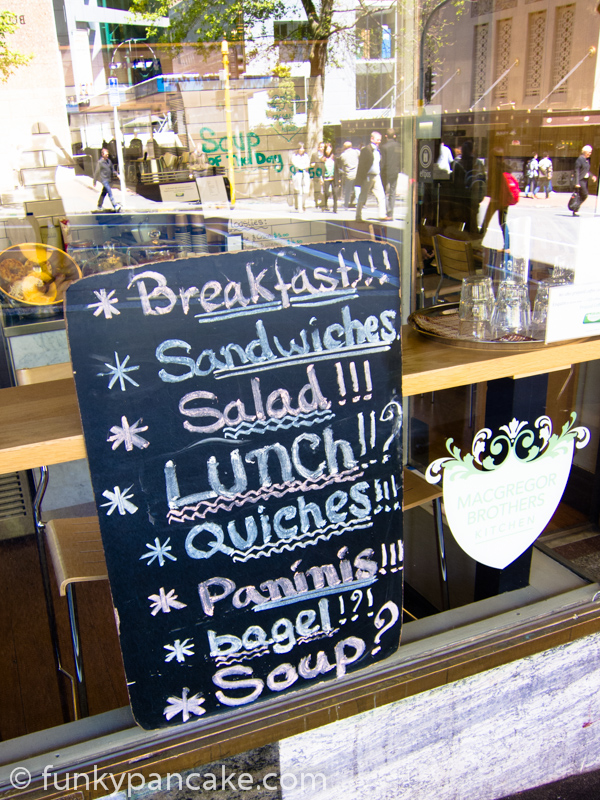 Soup
of The Day
* Breakfast!!!
* Sandwiches
* Salad!!!
* LUNCh!!?
* Quiches!!!
* Paninis!!!
* bagel!?!
* Soup?
MACGREGOR
BROTHERS
KITCHEN
© funkypancake.com